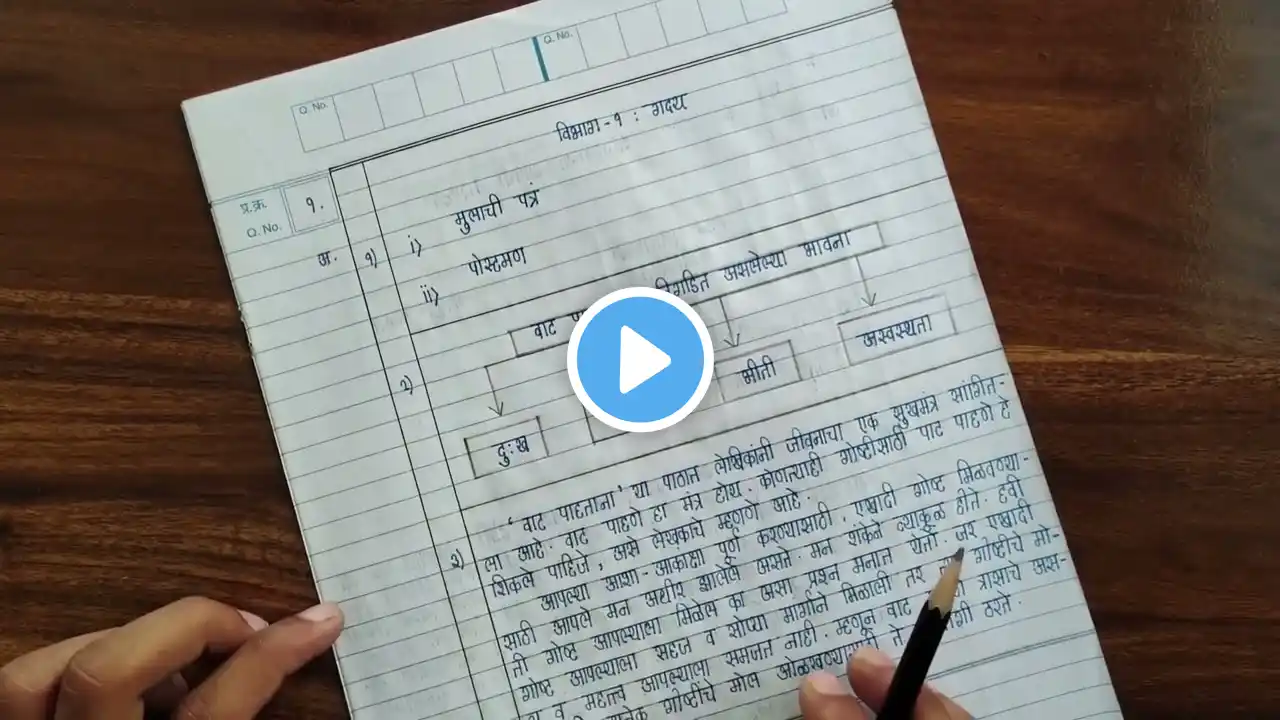 Q. No.
Q. No.
विभाग-१ : गदय
प्र.क्र.
Q. No.
१.
अ.
१)
i) मुलाची पत्रं
ii) पोस्टमण
२)
वाट निगडित असलेल्या भावना
दुःख
भीती
अस्वस्थता
३)
'वाट पाहताना' या पाठात लेखिकांनी जीवनाचा एक सुखमंत्र सांगित-
ला आहे. वाट पाहणे हा मंत्र होय. कोणत्याही गोष्टीसाठी पाट पाहणे हे
शिकले पाहिजे, असे लेखकाचे म्हणणे आहे.
आपल्या आशा-आकांक्षा पूर्ण करण्यासाठी, एखादी गोष्ट मिळवण्या-
साठी आपले मन अधीर झालेले असते. मन शंकेने व्याकूळ होते. हवी
ती गोष्ट आपल्याला मिळेल का असा प्रश्न मनात येतो. जर एखादी
गोष्ट आपल्याला सहज व सोप्या मार्गाने मिळाली तर गोष्टीचे मो-
व महत्त्व आपल्याला समजत नाही. म्हणून वाट त्रासाचे अस-
गोष्टीचे मोल ओळखण्यासाठी ते ठरते.